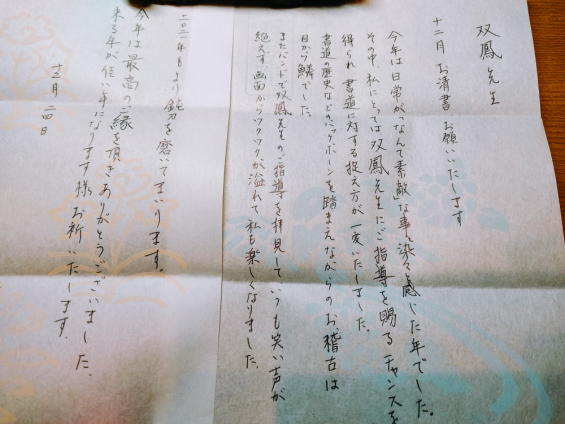 双鳳先生
十二月 お清書 お願いいたします
今年は日常が"なんて素敵"な事と染々感じた年でした。
その中、私にとっては双鳳先生にご指導を賜るチャンスを
得られ、書道に対する捉え方が一変いたしました。
書道の歴史などのバックボーンを踏まえながらのお稽古は
目から鱗でした。
またバンドで双鳳先生のご指導を拝見して、いつも笑い声が
絶えず画面からワクワクが溢れて私も楽しくなりました。
二〇二一年もより鈍刀を磨いてまいります。
今年は最高のご縁を頂きありがとうございました。
来る年が佳い年になります様、お祈いたします。
十二月 二四日